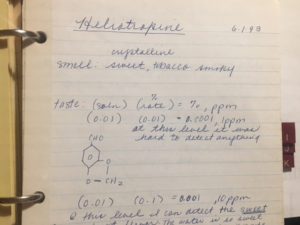 Heliotropine 6.1.93
crystalline
smell: sweet, tobacco smoky
%
taste: (soln) (rate) = %, ppm
(0.01) (0.01) = 0.0001, 1ppm
at this level it was
hard to detect anything
CHO
O
O — CH2
(0.01) (0.1) = 0.001, 10ppm
@ this level it can detect the sweet
The water is so sweet